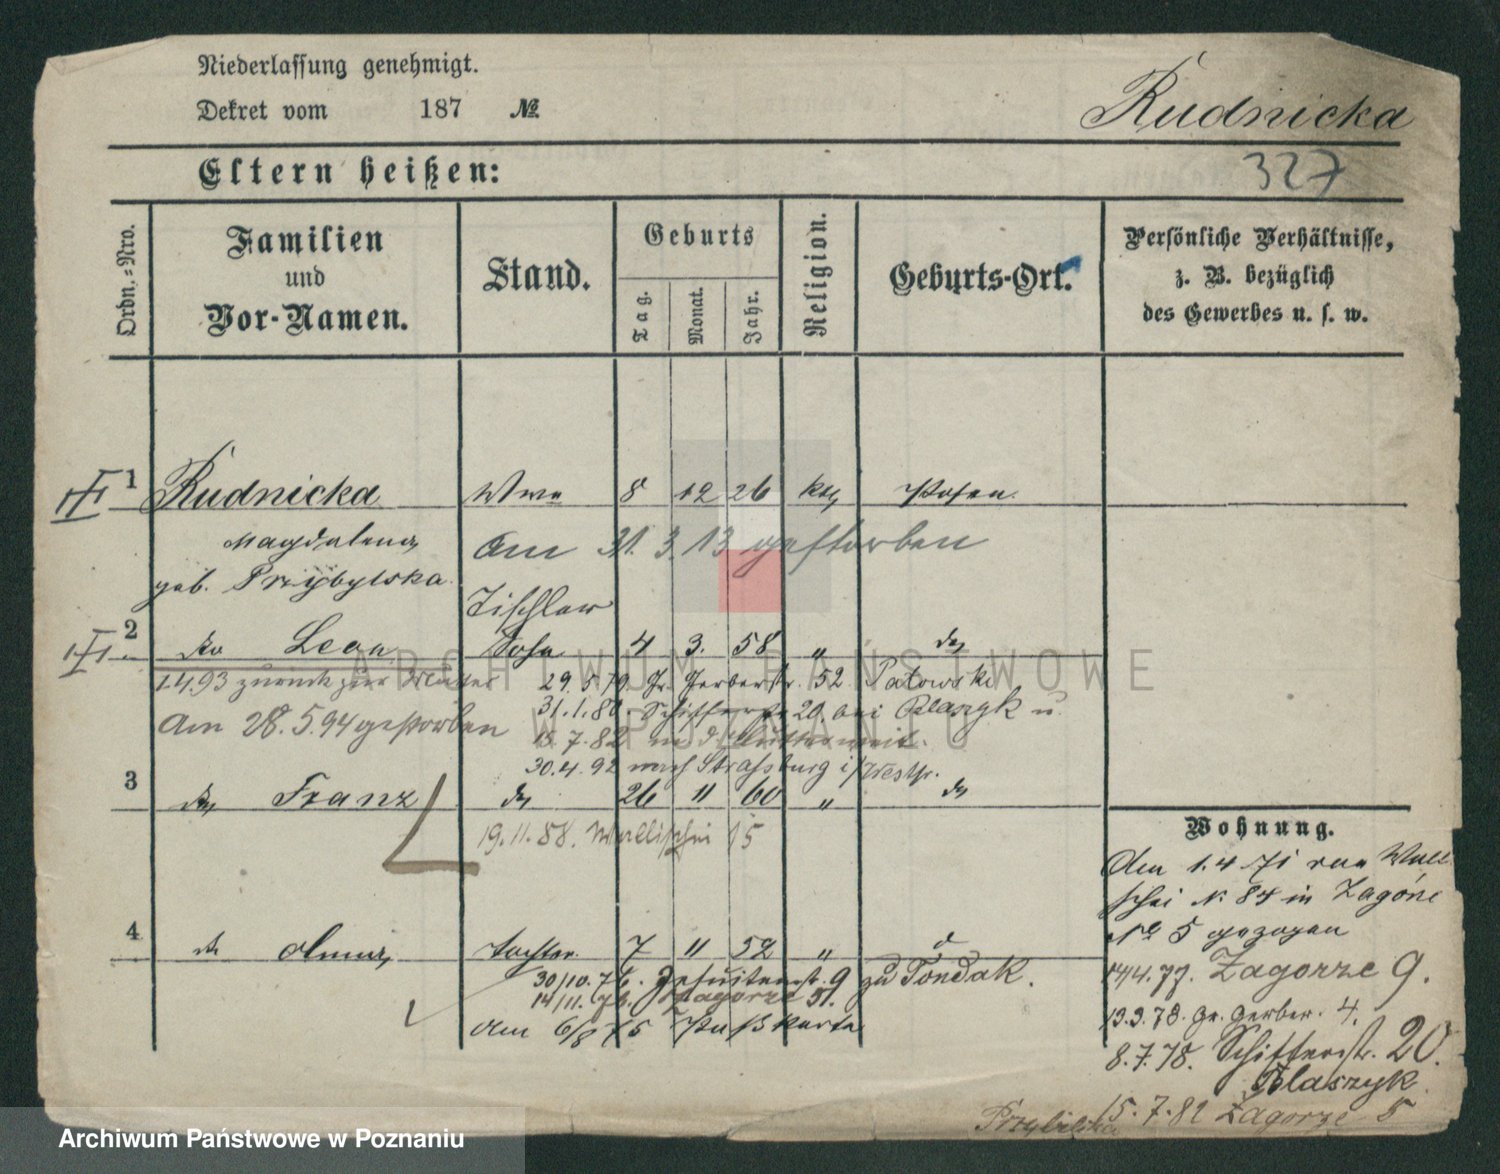 Niederlassung genehmigt.
Dekret vom 187 №
Rudnicka
327
Eltern heißen:
Ordn.-Nro.
Familien
und
Vor-Namen.
Stand.
Geburts
Tag.
Monat.
Jahr.
Religion.
Geburts-Ort.
Persönliche Verhältnisse,
z. B. bezüglich
des Gewerbes u. s. w.
1 Rudnicka Wwe 8 12 26 kth Posen.
Magdalena
geb. Przybylska
Am 31. 3. 13 gestorben
Tischler
2 do Leon Sohn 4 3. 58 " do
1.4.93 zurück zur Mutter
Am 28.5.94 gestorben
29.5.79. Gr. Gerberstr. 52 Patowski
31.1.80 Schifferstr 20. bei Blaszyk u.
15.7.82
30.4.92 nach Strasburg i/Westpr.
3 do Franz do 26 " 60 " do
19.11.88. Wallischei 15
4 do Anna Tochter 7 " 52 " d
30/10.76. Jesuitenstr. 9 zu Tondak.
14/11. Zagorze 51.
Am 6/8 75 Paßkarte
Wohnung.
Am 1.4 71 von Wall
schei N. 84 in Zagórze
No 5 gezogen
14/4.77. Zagorze 9.
13.3.78. Gr. Gerber. 4.
8.7.78. Schifferstr. 20.
Blaszyk
15.7.82 Zagorze 5
Przybilska
ARCHIWUM PAŃSTWOWE
W POZNANIU
Archiwum Państwowe w Poznaniu